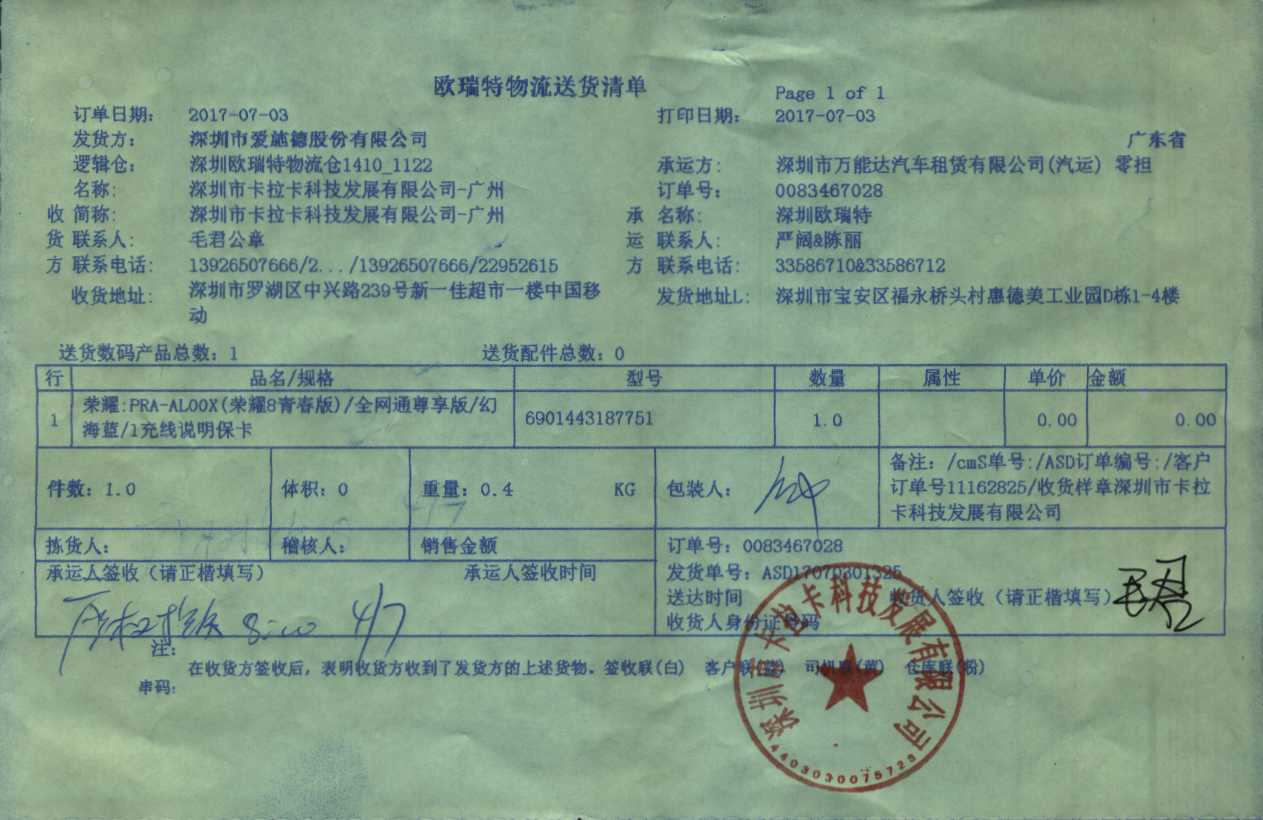 欧瑞特物流送货清单
Page 1 of 1
订单日期: 2017-07-03 打印日期: 2017-07-03
发货方: 深圳市爱施德股份有限公司 广东省
逻辑仓: 深圳欧瑞特物流仓1410_1122 承运方: 深圳市万能达汽车租赁有限公司(汽运) 零担
名称: 深圳市卡拉卡科技发展有限公司-广州 订单号: 0083467028
收 简称: 深圳市卡拉卡科技发展有限公司-广州 承 名称: 深圳欧瑞特
货 联系人: 毛君公章 运 联系人: 严阔&陈丽
方 联系电话: 13926507666/2.../13926507666/22952615 方 联系电话: 33586710&33586712
收货地址: 深圳市罗湖区中兴路239号新一佳超市一楼中国移 发货地址L: 深圳市宝安区福永桥头村惠德美工业园D栋1-4楼
动
送货数码产品总数: 1 送货配件总数: 0
行 品名/规格 型号 数量 属性 单价 金额
1 荣耀:PRA-AL00X(荣耀8青春版)/全网通尊享版/幻 6901443187751 1.0 0.00 0.00
海蓝/1充线说明保卡
件数: 1.0 体积: 0 重量: 0.4 KG 包装人:
备注: /cmS单号:/ASD订单编号:/客户
订单号11162825/收货样章深圳市卡拉
卡科技发展有限公司
拣货人: 稽核人: 销售金额 订单号: 0083467028
承运人签收(请正楷填写) 承运人签收时间 发货单号: ASD17070301325
送达时间 收货人签收(请正楷填写)
收货人身份证号码
4/7
注:
在收货方签收后, 表明收货方收到了发货方的上述货物。签收联(白) 客户联(蓝) 司机联(黄) 仓库联(粉)
串码:
深圳市卡拉卡科技发展有限公司
4403030075728